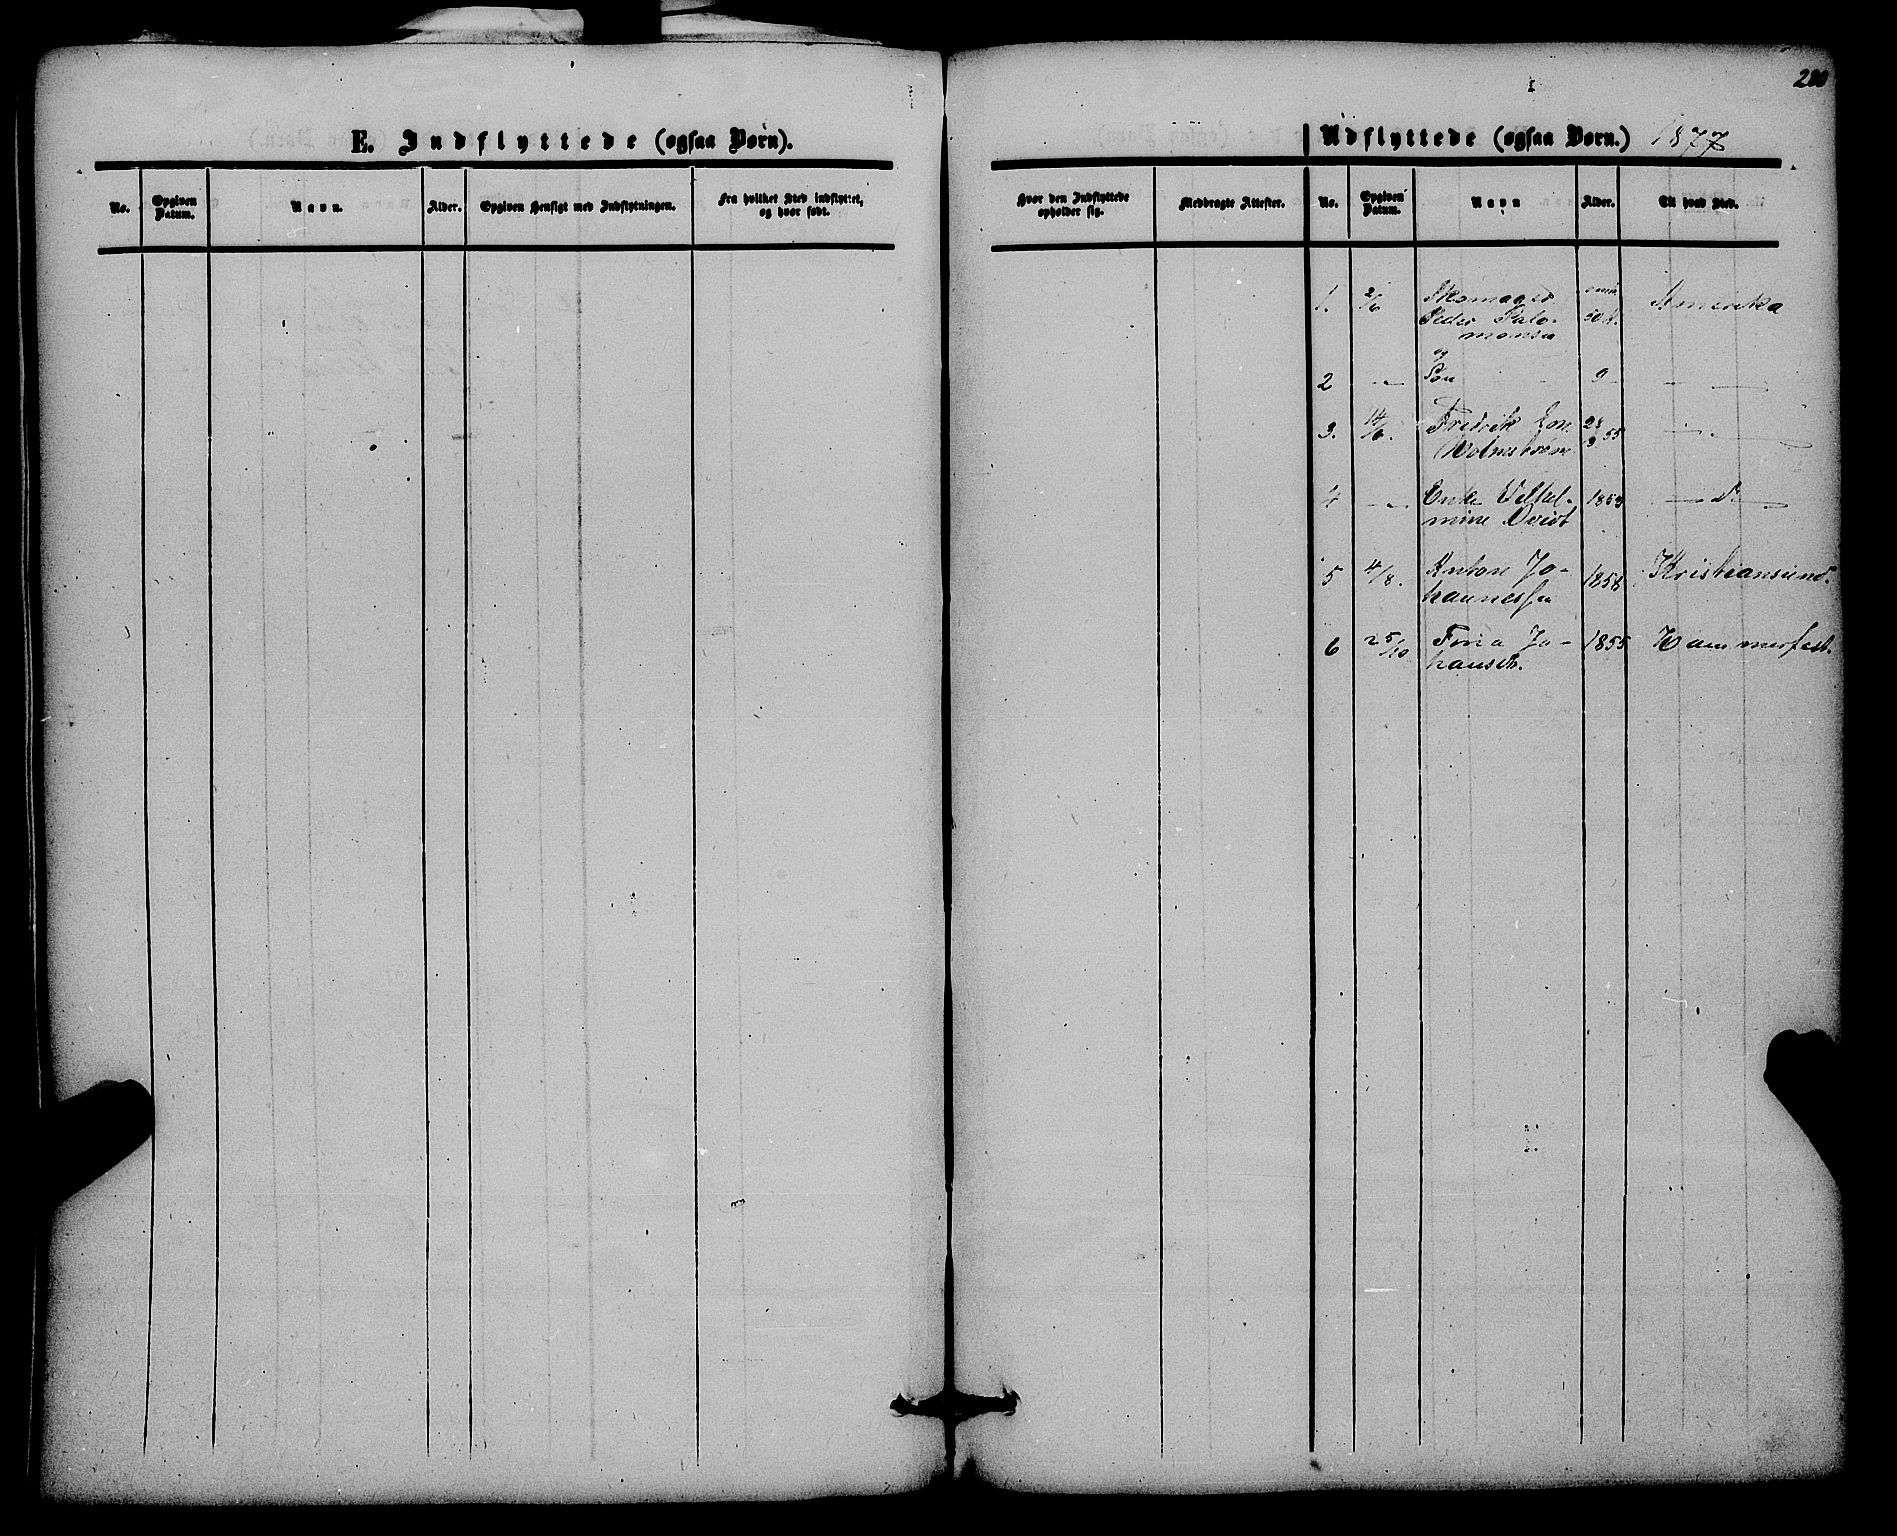 280
E. Indflyttede (ogsaa Børn).
No.
Opgiven
Datum.
Navn.
Alder.
Opgiven Hensigt med Indflytningen.
Fra hvilket Sted indflyttet,
og hvor født.
Udflyttede (ogsaa Børn.) 1877
Hvor den Indflyttede
opholder sig.
Medbragte Attester.
No.
Opgiven
Datum.
Navn
Alder.
Til hvad Sted.
1. 2/6 Skomager Amerika
Peder Salo-
monsen
og
2 -"- Søn 9 -"-
3. 14/6. Fredrik 28/3 55 -"-
4 -"- Enke Vilhel- 1853 -d-
mine
5 4/8. Anton Jo- 1858 Kristiansund.
hannessen
6 25/10 Jo- 1855 Hammerfest.
hansdtr.